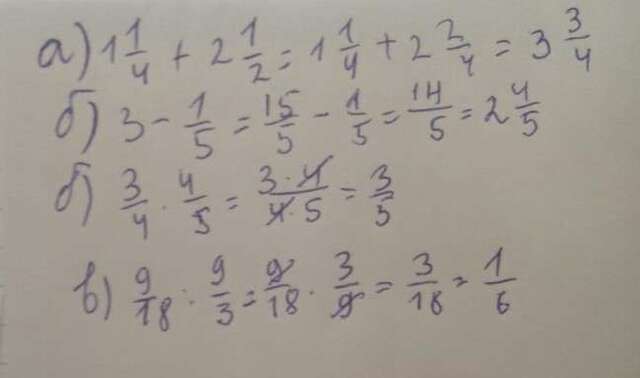 а) 1 1/4 + 2 1/2 = 1 1/4 + 2 2/4 = 3 3/4
б) 3 - 1/5 = 15/5 - 1/5 = 14/5 = 2 4/5
б) 3/4 · 4/5 = 3·4/4·5 = 3/5
в) 9/18 : 9/3 = 9/18 · 3/9 = 3/18 = 1/6